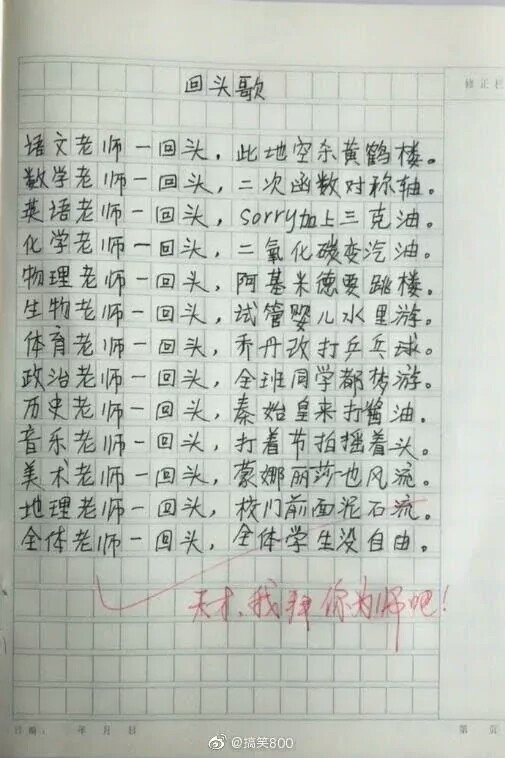 回头歌
修正栏
语文老师一回头，此地空余黄鹤楼。
数学老师一回头，二次函数对称轴。
英语老师一回头，sorry加上三克油。
化学老师一回头，二氧化碳变汽油。
物理老师一回头，阿基米德要跳楼。
生物老师一回头，试管婴儿水里游。
体育老师一回头，乔丹改打乒乓球。
政治老师一回头，全班同学都梦游。
历史老师一回头，秦始皇来打酱油。
音乐老师一回头，打着节拍摇着头。
美术老师一回头，蒙娜丽莎也风流。
地理老师一回头，校门前面泥石流。
全体老师一回头，全体学生没自由。
天才，我拜你为师吧！
日期： 年 月 日 第 页
@搞笑800